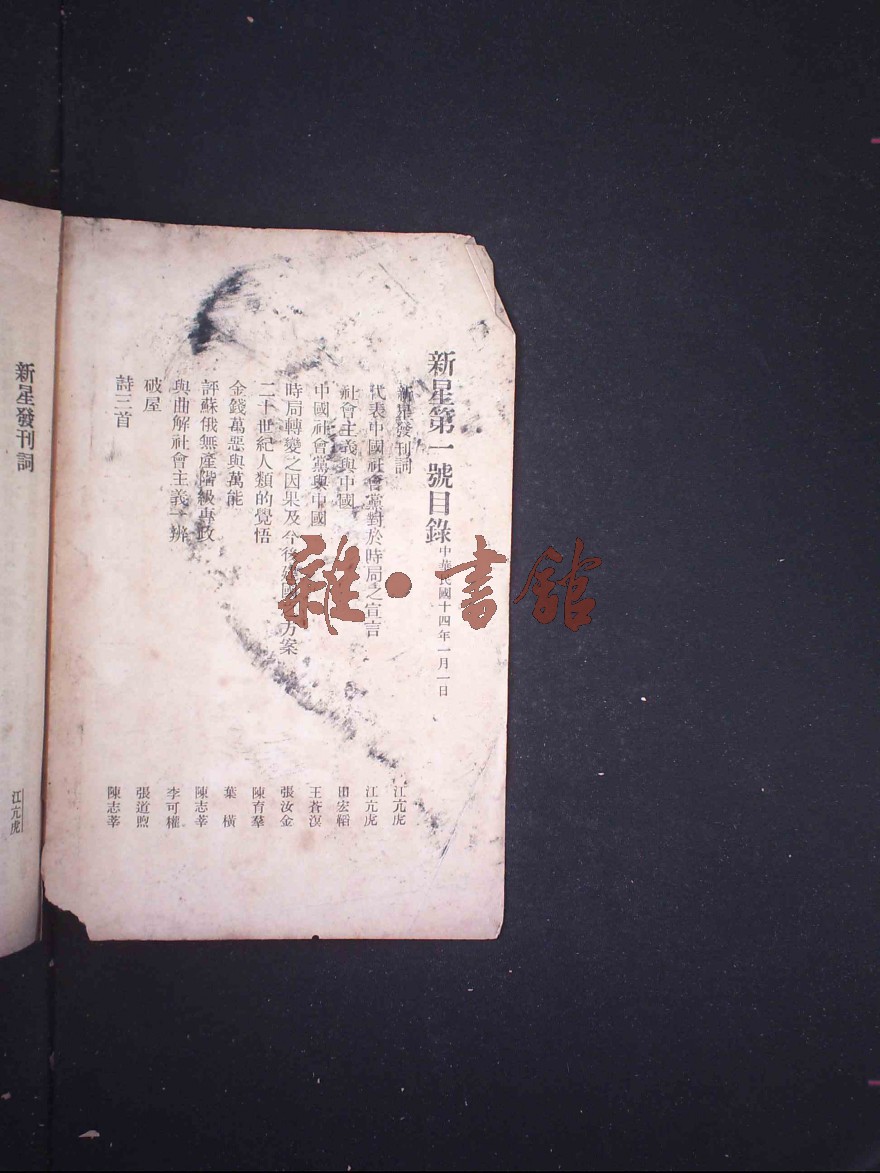 新星第一號目錄
中華民國十四年一月一日
新星發刊詞
江亢虎
代表中國社會黨對於時局之宣言
江亢虎
社會主義與中國
田宏韜
中國社會黨與中國
王蒼溟
時局轉變之因果及今後建國 方案
張汝金
二十世紀人類的覺悟
陳育羣
金錢萬惡與萬能
葉橫
評蘇俄無產階級專政
陳志莘
與曲解社會主義一辨
李可權
破屋
張道煦
詩三首
陳志莘
新星發刊詞
江亢虎
雜·書館